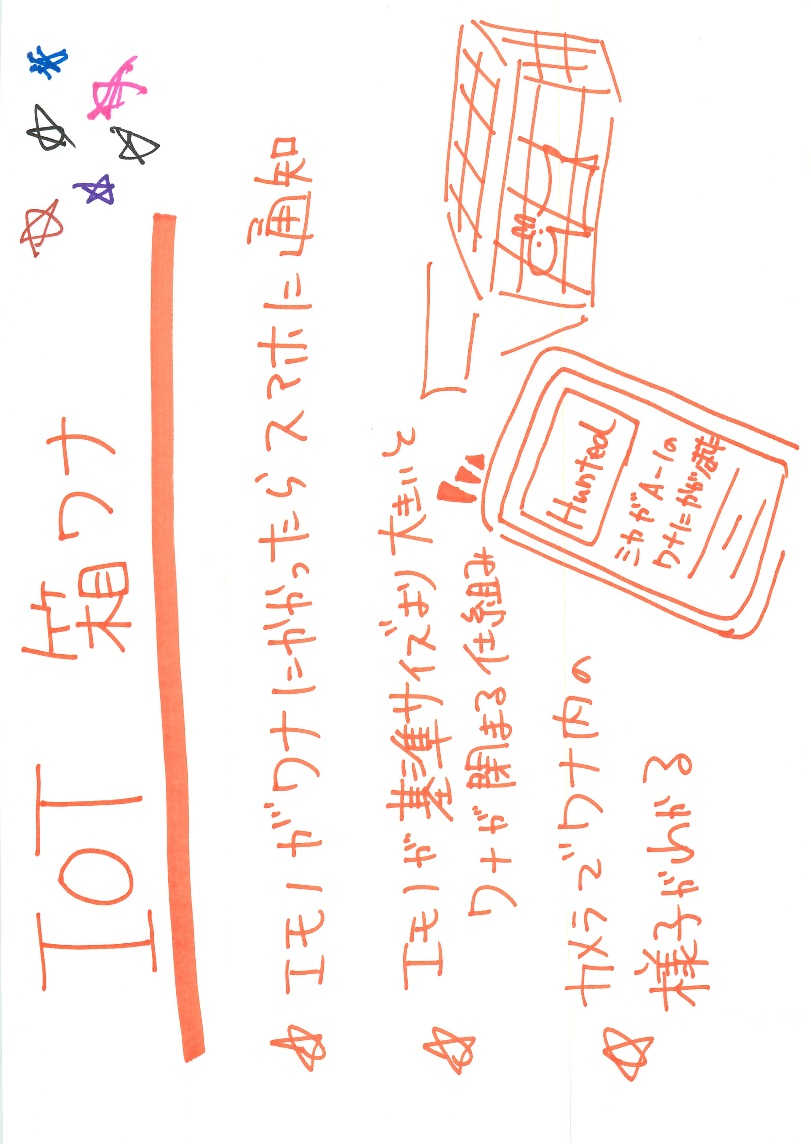 IoT 箱ワナ
エモノがワナにかかったらスマホに通知
エモノが基準サイズより大きいと
ワナが閉まる仕組み
カメラでワナ内の
様子がわかる
Hunted
ミカがA-1の
ワナにかかが